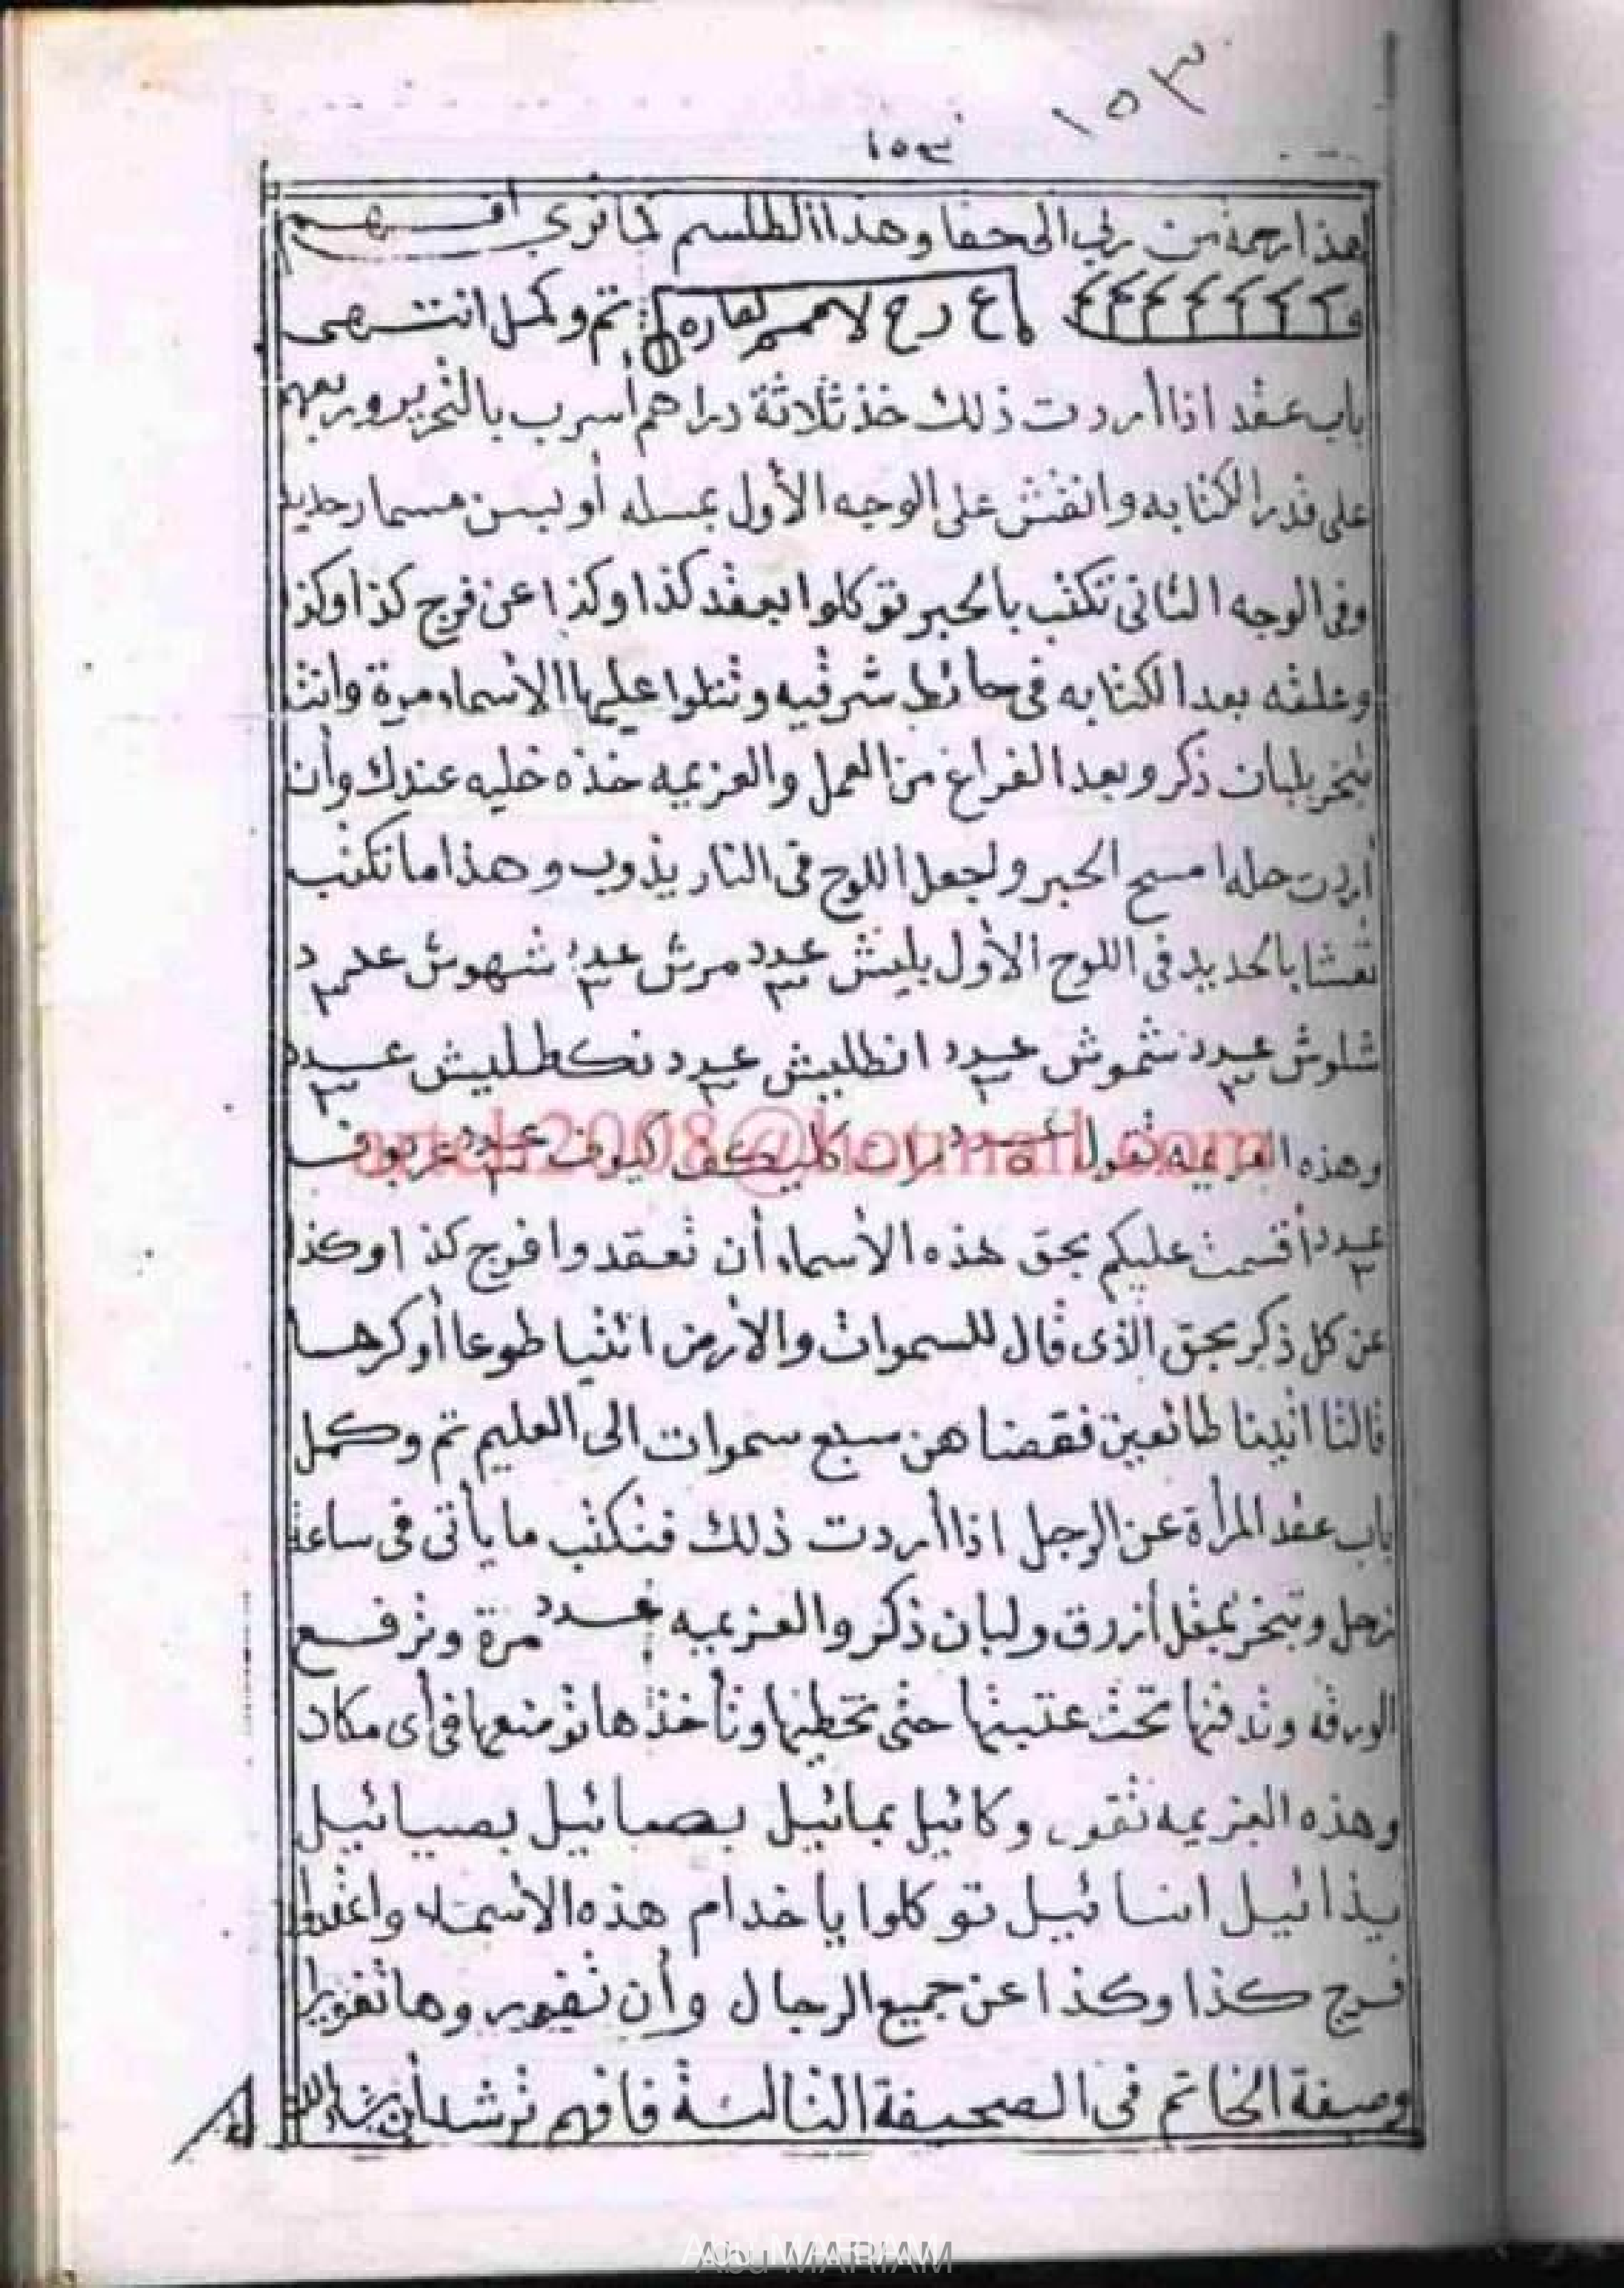 ١٥٣
١٥٣
هذا رحمة من ربى الى حقا وهذا الطلسم كما ترى افهم
تم وكمل انتهى
باب عقد اذا أردت ذلك خذ ثلاثة دراهم أسرب بالتحرير وربعهم
على قدر الكتابه وانقش على الوجه الأول بمسله أو بسن مسمار حديد
وفى الوجه الثانى تكتب بالحبر توكلوا بعقد كذا وكذا عن فرج كذا وكذا
وعلقه بعد الكتابه فى حائط شرقيه وتتلوا عليها الاسماء مرة وانت
تبخر بلبان ذكر وبعد الفراغ من العمل والعزيمه خذه خليه عندك وأن
أردت حله امسح الحبر ولجعل اللوح فى النار يذوب وهذا ما تكتب
نقشا بالحديد فى اللوح الأول بليش عدد ٣ مرش عدد ٣ شهوش عدد ٣
شلوش عدد ٣ شموش عدد ٣ انطليش عدد ٣ نكطليش عدد ٣
وهذه العزيمه تقول عدد مرات كيوف عدد ٣
artch2008@hotmail.com
عدد ٣ أقسمت عليكم بحق هذه الاسماء أن تعقدوا فرج كذا وكذا
عن كل ذكر بحق الذى قال للسموات والارض ائتيا طوعا أو كرها
قالتا اتينا طائعين فقضاهن سبع سموات الى العليم تم وكمل
باب عقد المرأة عن الرجل اذا أردت ذلك فتكتب ما يأتى فى ساعة
زحل وتبخر بمقل أزرق ولبان ذكر والعزيمه عدد مرة وترفع
الورقه وتدفنها تحت عتبتها حتى تخطيها وتأخذها توضعها فى أى مكان
وهذه العزيمه تقول وكائيل بمائيل بصبائيل بصيائيل
يذائيل انسائيل توكلوا يا خدام هذه الاسماء واعقدوا
فرج كذا وكذا عن جميع الرجال وأن
وصفة الخاتم فى الصحيفة التالتة فافهم ترشد أن شاء الله
Abu MARIAM